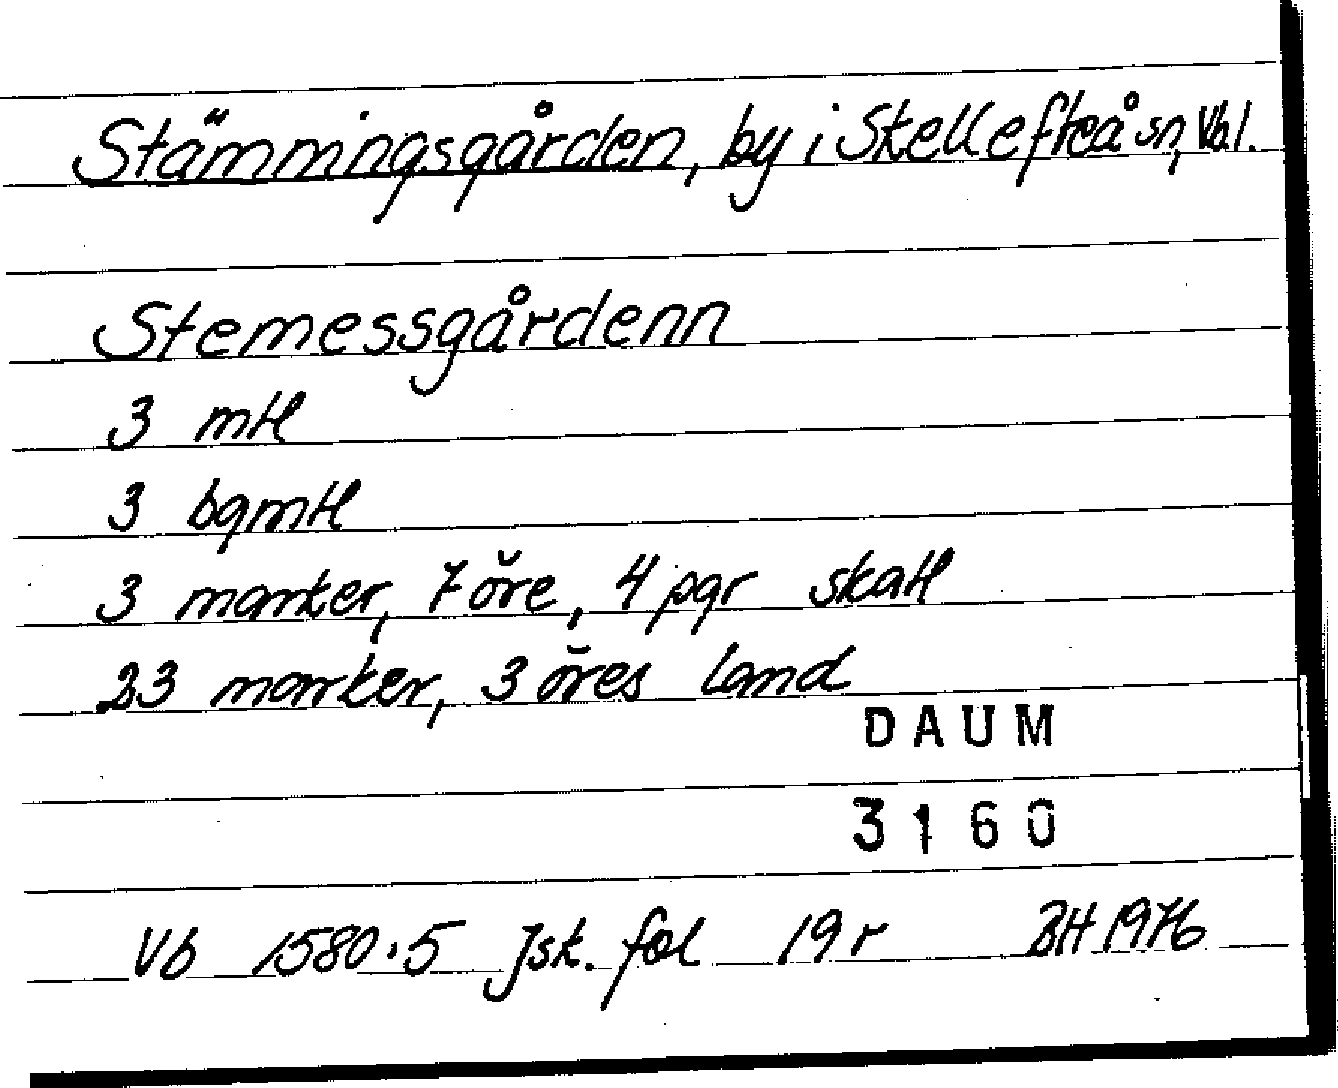 Stämningsgården, by i Skellefteå sn, Vb.l.
Stemessgårdenn
3 mtl
3 bgmtl
3 marker, 7 öre, 4 pgr skatt
23 marker, 3 öres land
DAUM
3160
Vb 1580:5 Jsk. fol 19r BH 1976